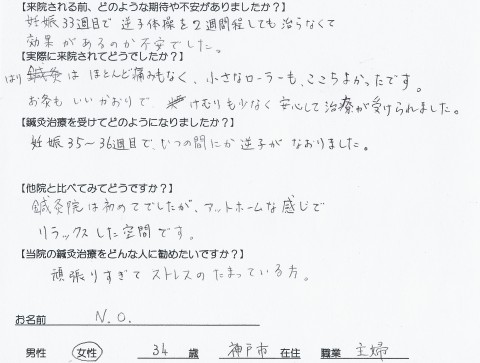 【来院される前、どのような期待や不安がありましたか？】
妊娠33週目で逆子体操を2週間程しても治らなくて
効果があるのか不安でした。
【実際に来院されてどうでしたか？】
はり鍼灸はほとんど痛みもなく、小さなローラーも、ここちよかったです。
お灸もいいかおりで けむりも少なく安心して治療が受けられました。
【鍼灸治療を受けてどのようになりましたか？】
妊娠35～36週目で、いつの間にか逆子がなおりました。
【他院と比べてみてどうですか？】
鍼灸院は初めてでしたが、アットホームな感じで
リラックスした空間です。
【当院の鍼灸治療をどんな人に勧めたいですか？】
頑張りすぎてストレスのたまっている方。
お名前 N.O.
男性 女性 34 歳 神戸市 在住 職業 主婦